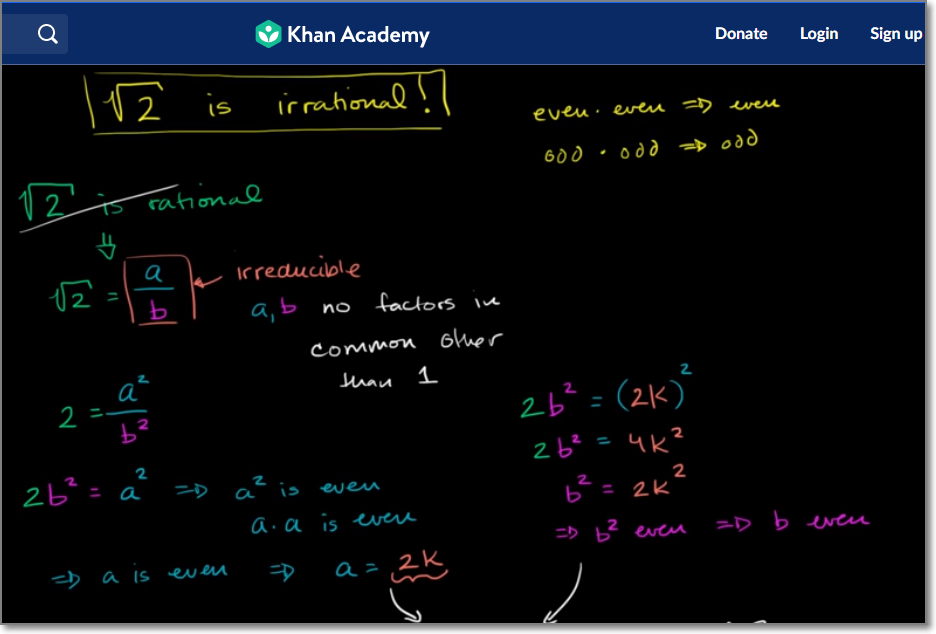 Khan Academy
Donate Login Sign up
√2 is irrational!
even · even ⇒ even
odd · odd ⇒ odd
√2 is rational
⇓
√2 = a/b ← irreducible
a, b no factors in
common other
than 1
2 = a²/b²
2b² = a² ⇒ a² is even
a · a is even
⇒ a is even ⇒ a = 2k
2b² = (2k)²
2b² = 4k²
b² = 2k²
⇒ b² even ⇒ b even